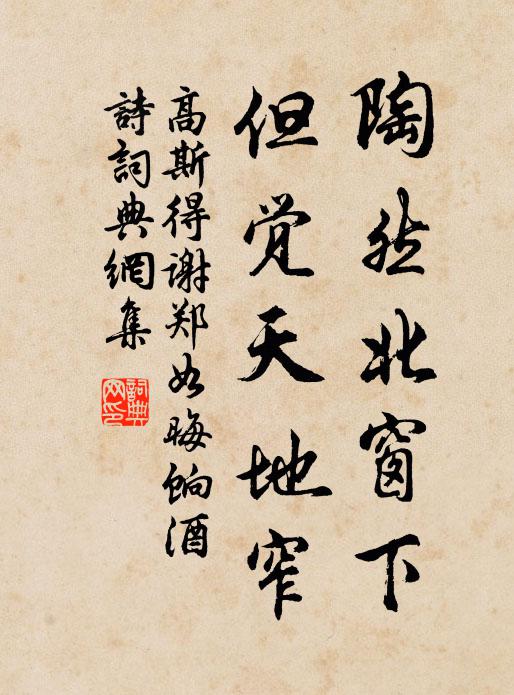 陶然北窗下
但觉天地窄
高斯得谢郑如晦饷酒
詩詞典網集
詞典网印